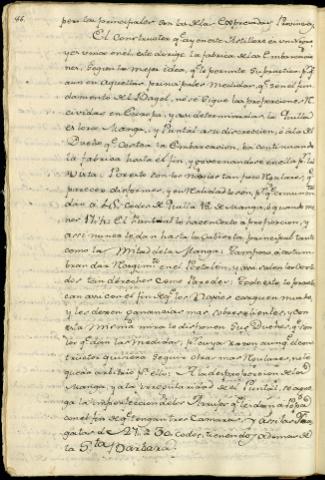 86.
por los principales Cabos de las Expresadas Provincias.
El Constructor q.e ay en este Astillero es un Viejo
y es unico en el, este dirige la fabrica de las Embarcacio
nes, segun la mejor idea, q.e le permite su practica, p.r q.e
aun en aquellas principales medidas, q.e son el fun
damento del Bagel, no se sigue las proporciones Re
cividas en Europa, y asi determinadas la Quilla
eslora Manga, y Puntal a su discrecion, o a la del
Dueño q.e costea la Embarcacion, ba continuando
la fabrica hasta el fin, governandose en ella p.r la
Vista. Por esto son los navios tan poco Regulares, q.e
parecen disformes, y en Realidad lo son p.r q.e
dan a 46 Codos de Quilla 18 de Manga, o quando me
nos 17 1/2. El Puntal lo hacen corto a proporcion, y
assi nunca le dan hasta la Cubierta principal tanto
como la Mitad de la Manga: Tampoco acostum
bran dar en el Portalon, y asi salen los Costa
dos tan derechos como Paredes: Todo esto lo practi
can assi con el fin de q.e los Navios carguen mucho,
y les dexen ganancias mas sobresalientes, y con
esta misma mira lo disponen sus Dueños, q.e son
los q.e dan las medidas, p.r cuya razon aunq.e el cons
tructor quisiera seguir otras mas Regulares, no le
queda arbitrio p.a ello: A la desproporcion de la
Manga, y a la irregularidad de el Puntal, se agre
ga la imperfeccion de los q.e le dan a Popa
con el fin de q.e tengan tres Camaras, y assi las Fra
gatas de 27 a 30 codos, tienen dos, y ademas de
la S.ta Barbara.